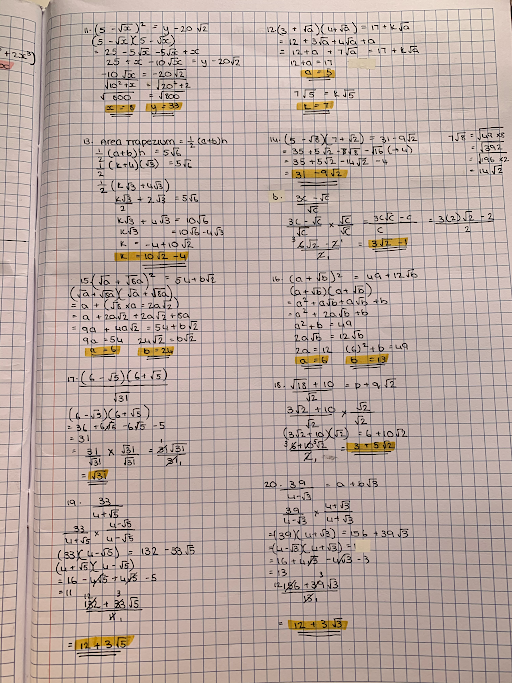 11. (5 - √x)² = y - 20√2
(5 - √x)(5 - √x)
= 25 - 5√x - 5√x + x
25 + x - 10√x = y - 20√2
-10√x = -20√2
√800 = √800
x = 8 y = 33
12. (3 + √a)(4 + √a) = 17 + k√a
= 12 + 3√a + 4√a + a
= 12 + a + 7√a = 17 + k√a
12 + a = 17
a = 5
7√5 = k√5
k = 7
13. Area trapezium = ½(a+b)h
½(a+b)h = 5√6
½(k+4)(√3) = 5√6
½(k√3 + 4√3)
k√3/2 + 2√3 = 5√6
k√3 + 4√3 = 10√6
k√3 = 10√6 - 4√3
k = -4 + 10√2
k = 10√2 - 4
14. (5 - √8)(7 + √2) = 31 - 9√2
= 35 + 5√2 - 14√2 - 4
= 31 - 9√2
7√8 = √49×8
= √392
= √196×2
= 14√2
b. 3c - √c
√c
3c - √c × √c = 3c√c - c = 3(2)√2 - 2
√c √c c 2
6√2 - 2 = 3√2 - 1
2
15. (√a + √8a)² = 54 + b√2
(√a + √8a)(√a + √8a)
= a + 2a√2 + 2a√2 + 8a
= 9a + 4a√2 = 54 + b√2
9a = 54 24√2 = b√2
a = 6 b = 24
16. (a + √b)² = 49 + 12√b
(a + √b)(a + √b)
= a² + a√b + a√b + b
= a² + 2a√b + b
a² + b = 49
2a√b = 12√b
2a = 12 (6)² + b = 49
a = 6 b = 13
17. (6 - √5)(6 + √5)
√31
(6 - √5)(6 + √5)
= 36 + 6√5 - 6√5 - 5
= 31
= 31 × √31 = 31√31
√31 √31 31
= √31
18. √18 + 10 = p + q√2
√2
3√2 + 10 × √2
√2 √2
(3√2 + 10)(√2) = 6 + 10√2
6 + 10√2 = 3 + 5√2
2
19. 33
4 + √5
33 × 4 - √5
4 + √5 4 - √5
(33)(4 - √5) = 132 - 33√5
(4 + √5)(4 - √5)
= 16 - 4√5 + 4√5 - 5
= 11
132 + 33√5
11
= 12 + 3√5
20. 39 = a + b√3
4 - √3
39 × 4 + √3
4 - √3 4 + √3
= (39)(4 + √3) = 156 + 39√3
= (4 - √3)(4 + √3) =
= 16 + 4√3 - 4√3 - 3
= 13
156 + 39√3
13
= 12 + 3√3